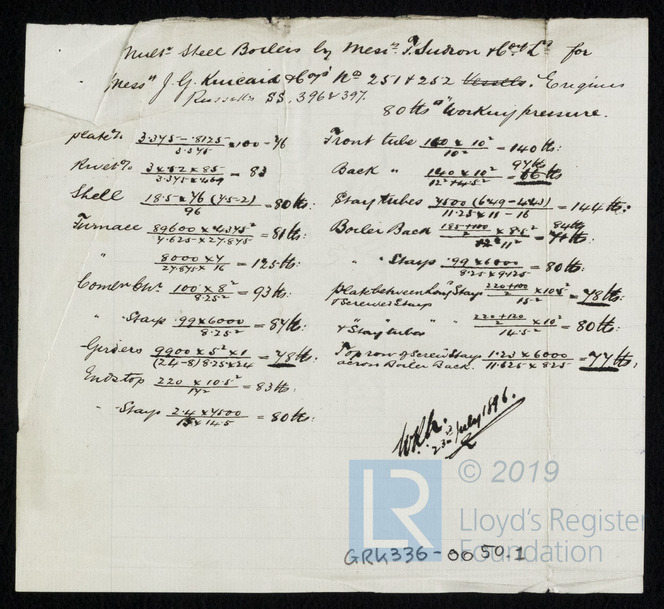 Mult. Steel Boilers by Mess.rs T. Sudron & Co.y L.d for
Mess.rs J. G. Kincaid & Coys No 251 & 252 Vessels. Engines
Russells SS. 396 & 397.
80 lbs □" Working pressure.
plate % 3.375 - .8125 / 3.375 x 100 - 76
Rivet % 3 x .52 x 85 / 3.375 x 469 = 83
Shell 18.5 x 76 (7.5-2) / 96 = 80 lbs:
Furnace 89600 x .4375² / 4.625 x 27.875 = 81 lbs:
" 8000 x 7 / 27.875 x 16 = 125 lbs:
Comb.n Chr. 100 x 8² / 8.25² = 93 lbs:
" Stays .99 x 6000 / 8.25² = 87 lbs:
Girders 9900 x 5² x 1 / (24-8) 8.25 x 24 = 78 lbs:
Ends top 220 x 10.5² / 17² = 83 lbs:
" Stays 2.4 x 7500 / 15 x 14.5 = 80 lbs:
Front tube 140 x 10² / 10² = 140 lbs:
Back " 140 x 10² / 12² + 4.5² = 97 lbs
Stay tubes 7500 (6.49 - 4.43) / 11.25 x 11 - 16 = 144 lbs:
Boiler Back 185+100 / 2 x 8.5² / 11² = 84 lbs
" " Stays .99 x 6000 / 8.25 x 9.125 = 80 lbs:
plate between long Stays & Screwed Stays 220+100 / 2 x 10.5² / 15² = 78 lbs:
" " & "Stay" tubes 220+120 / 2 x 10² / 14.5² = 80 lbs:
Top row of Screw Stays across Boiler Back. 1.23 x 6000 / 11.625 x 8.25 = 77 lbs:
23rd July 1896.
LR © 2019
Lloyd's Register
Foundation
GRK336-0050.1